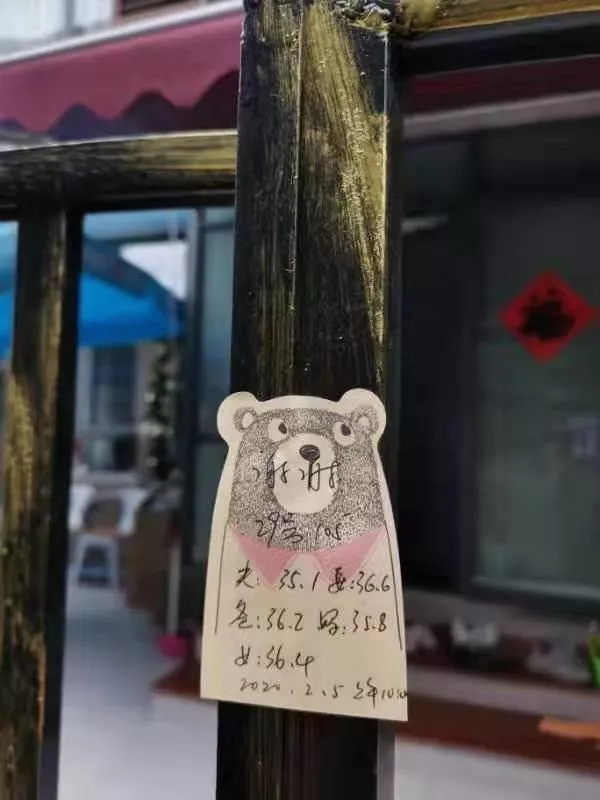 谢谢
29号 105
夫:35.1 妻:36.6
爸:36.2 妈:35.8
女:36.4
2020.2.5 上午10:50